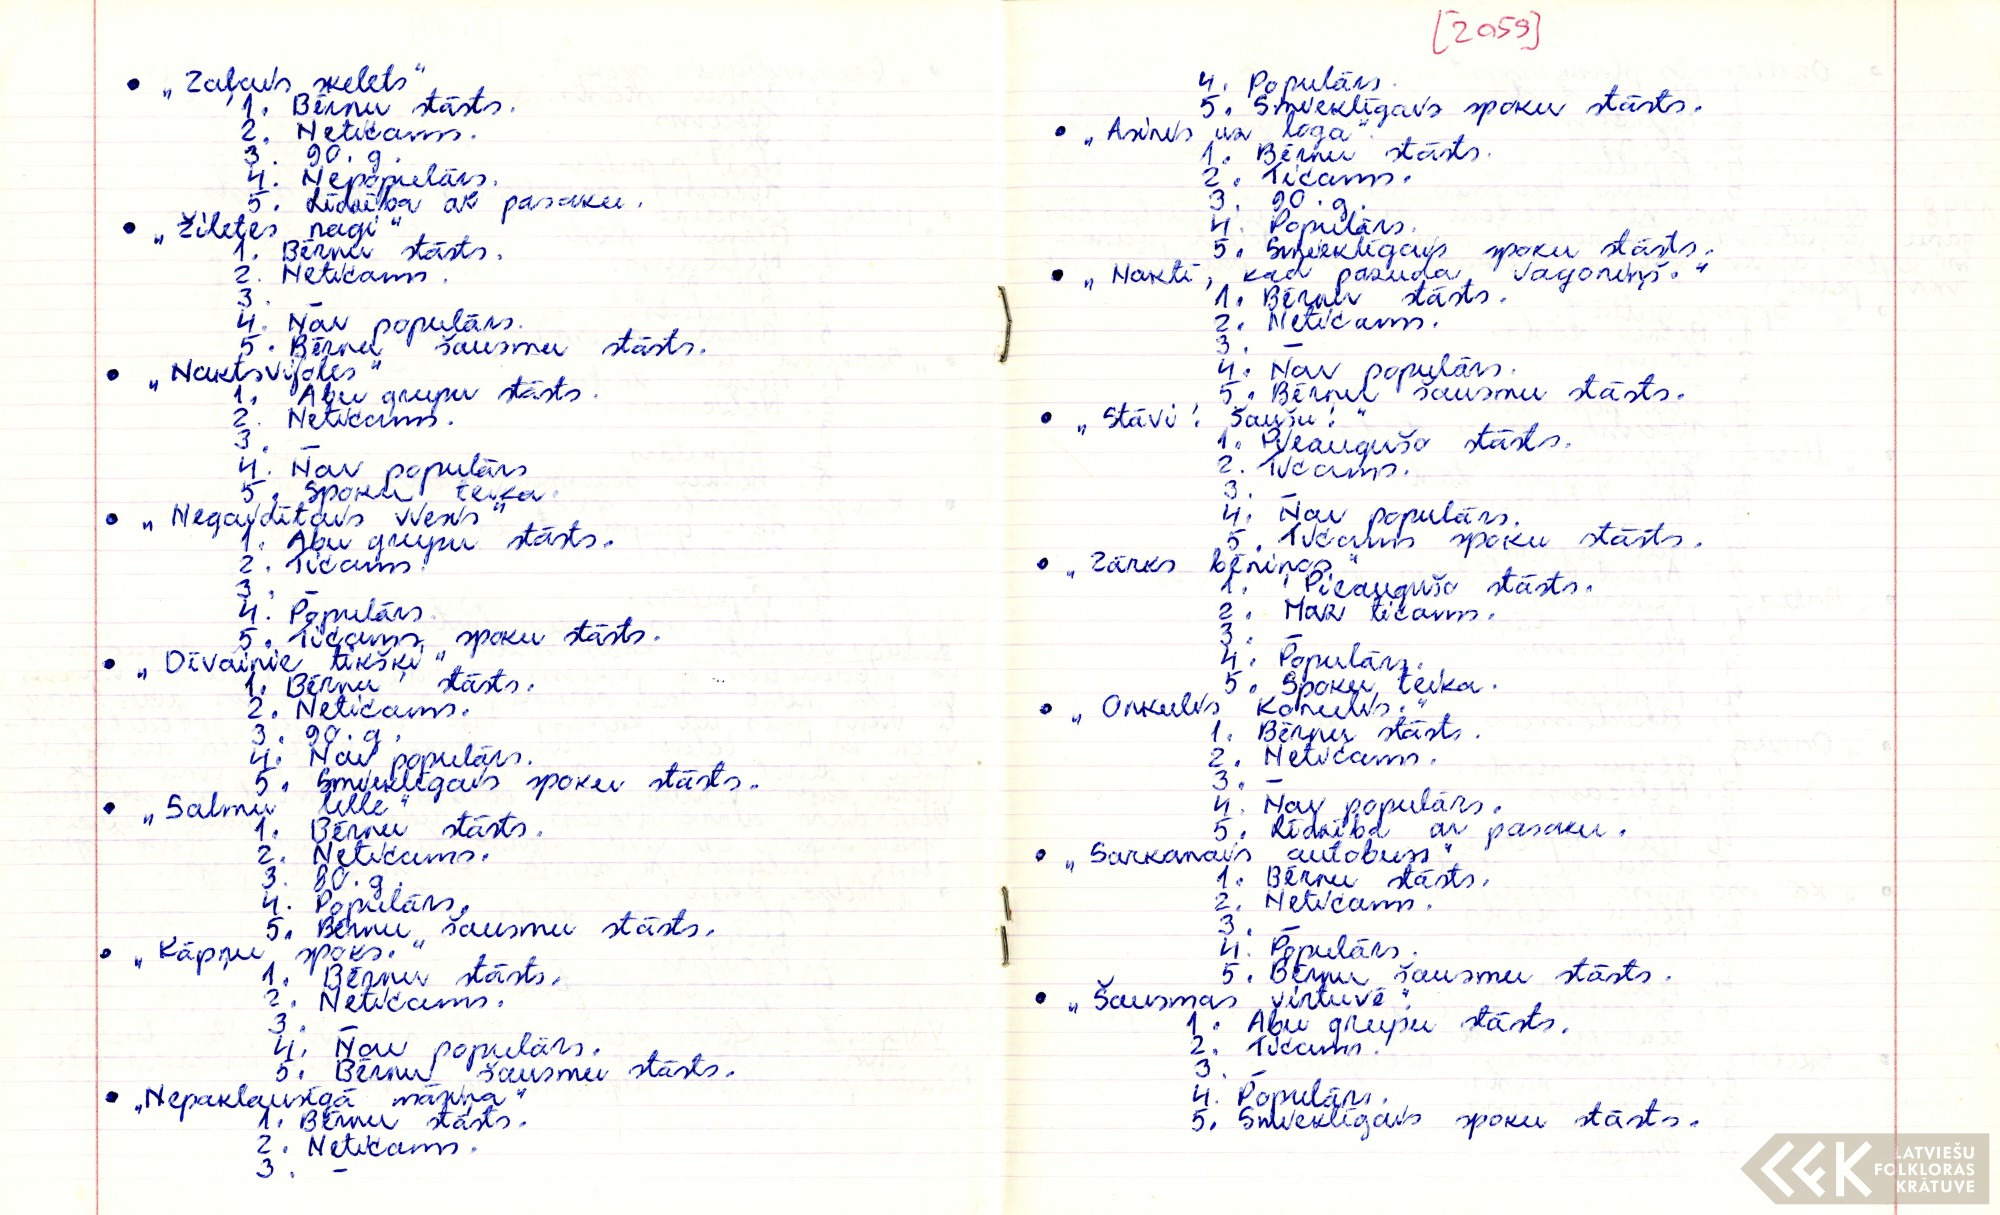 • „Zaļais skelets“
1. Bērnu stāsts.
2. Neticams.
3. 90. g.
4. Nepopulārs.
5. Līdzība ar pasaku.
• „Žiletes nagi“
1. Bērnu stāsts.
2. Neticams.
3. –
4. Nav populārs.
5. Bērnu šausmu stāsts.
• „Naktsvijoles“
1. Abu grupu stāsts.
2. Neticams.
3. –
4. Nav populārs
5. Spoku teika.
• „Negaidītais viesis“
1. Abu grupu stāsts.
2. Ticams.
3. –
4. Populārs.
5. Ticams spoku stāsts.
• „Dīvainie tikšķi“
1. Bērnu stāsts.
2. Neticams.
3. 90. g.
4. Nav populārs.
5. Smieklīgais spoku stāsts.
• „Salmu lelle“
1. Bērnu stāsts.
2. Neticams.
3. 80. g.
4. Populārs.
5. Bērnu šausmu stāsts.
• „Kāpņu spoks.“
1. Bērnu stāsts.
2. Neticams.
3. –
4. Nav populārs.
5. Bērnu šausmu stāsts.
• „Nepaklausīgā māsiņa“
1. Bērnu stāsts.
2. Neticams.
3. –
[2059]
4. Populārs.
5. Smieklīgais spoku stāsts.
• „Asinis uz loga“.
1. Bērnu stāsts.
2. Ticams.
3. 90. g.
4. Populārs.
5. Smieklīgais spoku stāsts.
• „Naktī, kad pazuda vagoniņš.“
1. Bērnu stāsts.
2. Neticams.
3. –
4. Nav populārs.
5. Bērnu šausmu stāsts.
• „Stāvi! Šaušu!“
1. Pieaugušo stāsts.
2. Ticams.
3. –
4. Nav populārs.
5. Ticams spoku stāsts.
• „Zārks bēniņos“
1. Pieaugušo stāsts.
2. Maz ticams.
3. –
4. Populārs.
5. Spoku teika.
• „Onkulis Konulis.“
1. Bērnu stāsts.
2. Neticams.
3. –
4. Nav populārs.
5. Līdzība ar pasaku.
• „Sarkanais autobuss“
1. Bērnu stāsts.
2. Neticams.
3. –
4. Populārs.
5. Bērnu šausmu stāsts.
• „Šausmas virtuvē“.
1. Abu grupu stāsts.
2. Ticams.
3. –
4. Populārs.
5. Smieklīgais spoku stāsts.
LATVIEŠU
FOLKLORAS
KRĀTUVE